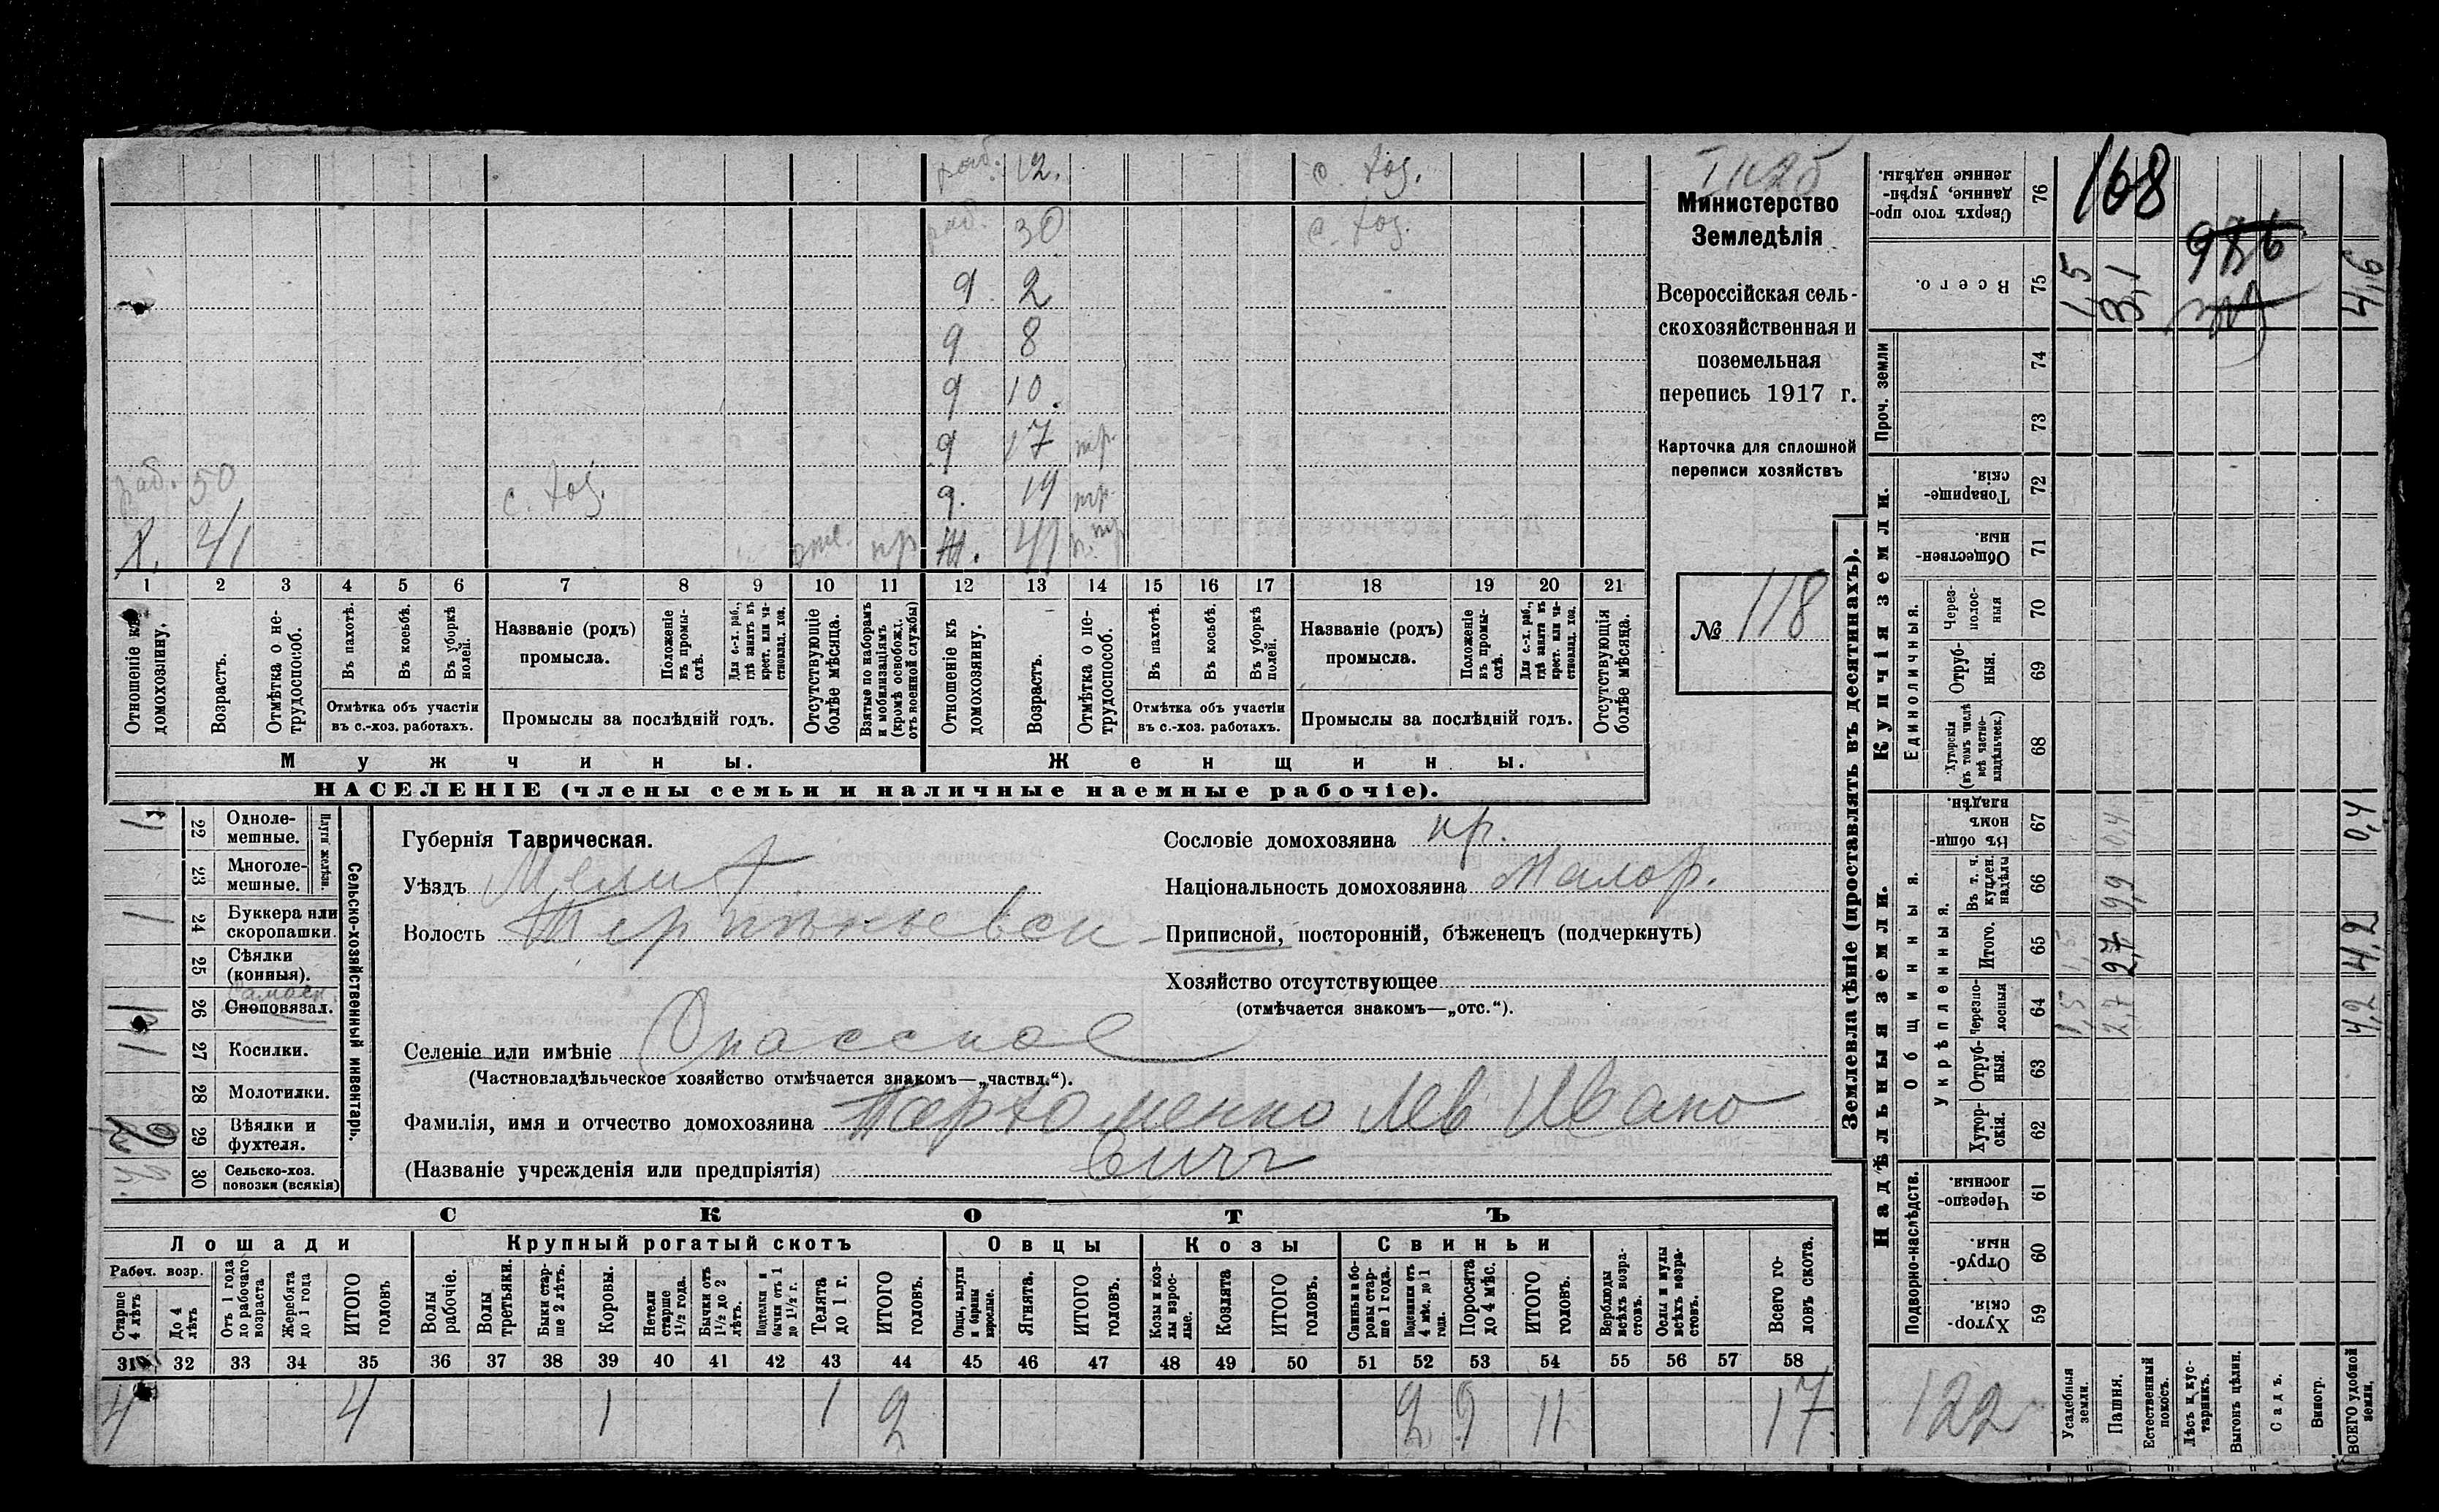 раб. 12. с. хоз.
раб. 30 с. хоз.
д 2
д 8
д 10.
д 17 нр.
раб. 50 с. хоз. д. 19 нр.
х. 41 отс. пр ж. 41
1 2 3 4 5 6 7 8 9 10 11 12 13 14 15 16 17 18 19 20 21
Отношеніе къ домохозяину.
Возрастъ.
Отмѣтка о нетрудоспособ.
Въ пахотѣ.
Въ косьбѣ.
Въ уборкѣ полей.
Отмѣтка объ участіи
въ с.-хоз. работахъ.
Названіе (родъ)
промысла.
Положеніе въ промыслѣ.
Для с.-х. раб., гдѣ занятъ въ крест. или частновлад. хоз.
Промыслы за послѣдній годъ.
Отсутствующіе болѣе мѣсяца.
Взятые по наборамъ и мобилизаціямъ (кромѣ освобожд. отъ военной службы)
Отношеніе къ домохозяину.
Возрастъ.
Отмѣтка о нетрудоспособ.
Въ пахотѣ.
Въ косьбѣ.
Въ уборкѣ полей.
Отмѣтка объ участіи
въ с.-хоз. работахъ.
Названіе (родъ)
промысла.
Положеніе въ промыслѣ.
Для с.-х. раб., гдѣ занята въ крест. или частновлад. хоз.
Промыслы за послѣдній годъ.
Отсутствующія болѣе мѣсяца.
Мужчины.
Женщины.
НАСЕЛЕНІЕ (члены семьи и наличные наемные рабочіе).
Министерство
Земледѣлія
Всероссійская сель-
скохозяйственная и
поземельная
перепись 1917 г.
Карточка для сплошной
переписи хозяйствъ
№ 118
Сельско-хозяйственный инвентарь.
Плуги желѣзн.
1 22 Однолемешные.
23 Многолемешные.
1 24 Буккера или скоропашки.
25 Сѣялки (конныя).
1 26 Сноповязал.
1 27 Косилки.
28 Молотилки.
29 Вѣялки и фухтеля.
30 Сельско-хоз. повозки (всякія)
Губернія Таврическая.
Уѣздъ Мелит
Волость Терпѣньевск
Селеніе или имѣніе Спасское
(Частновладѣльческое хозяйство отмѣчается знакомъ—„частвл.“).
Фамилія, имя и отчество домохозяина Пархоменко Лев Ивано
(Названіе учрежденія или предпріятія) вичъ
Сословіе домохозяина кр.
Національность домохозяина Малор.
Приписной, посторонній, бѣженецъ (подчеркнуть)
Хозяйство отсутствующее
(отмѣчается знакомъ—„отс.“).
СКОТЪ
Лошади
Крупный рогатый скотъ
Овцы
Козы
Свиньи
Рабоч. возр.
Старше 4 лѣтъ
До 4 лѣтъ
Отъ 1 года до рабочаго возраста
Жеребята до 1 года
ИТОГО головъ
Волы рабочіе.
Волы третьяки.
Быки старше 2 лѣтъ.
Коровы.
Нетели старше 1½ года.
Бычки отъ 1½ до 2 лѣтъ.
Подтелки и бычки отъ 1 до 1½ г.
Телята до 1 г.
ИТОГО головъ.
Овцы, валухи и бараны взрослые.
Ягнята.
ИТОГО головъ.
Козы и козлы взрослые.
Козлята
ИТОГО головъ.
Свиньи и боровы старше 1 года.
Подсвинки отъ 4 мѣс. до 1 года.
Поросята до 4 мѣс.
ИТОГО головъ.
Верблюды всѣхъ возрастовъ.
Ослы и мулы всѣхъ возрастовъ.
Всего головъ скота.
31 32 33 34 35 36 37 38 39 40 41 42 43 44 45 46 47 48 49 50 51 52 53 54 55 56 57 58
4 4 1 1 2 2 9 11 17
Землевладѣніе (проставлять въ десятинахъ).
Надѣльныя земли.
Купчія земли.
Проч. земли
Подворно-наслѣдств.
Общинныя.
Укрѣпленныя.
Единоличныя.
Сверхъ того проданные, укрѣпленные надѣлы. 76 168
Всего. 75 1,5 3,1 4,6
74
73
Товарищескія. 72
Общественныя. 71
Черезполосныя 70
Отрубныя. 69
Хуторскія (въ томъ числѣ всѣ частновладѣльческ.) 68
Въ общинномъ владѣн. 67 0,4 0,4
Въ т. ч. куплен. надѣлы 66
Итого. 65 1,5 2,7 4,2
Черезполосныя 64 1,5 2,7 4,2
Отрубныя. 63
Хуторскія. 62
Черезполосныя. 61
Отрубныя. 60
Хуторскія. 59
122
Усадебныя земли.
Пашня.
Естественный покосъ.
Лѣсъ и кустарникъ.
Выгонъ цѣлин.
Садъ.
Виногр.
ВСЕГО удобной земли,